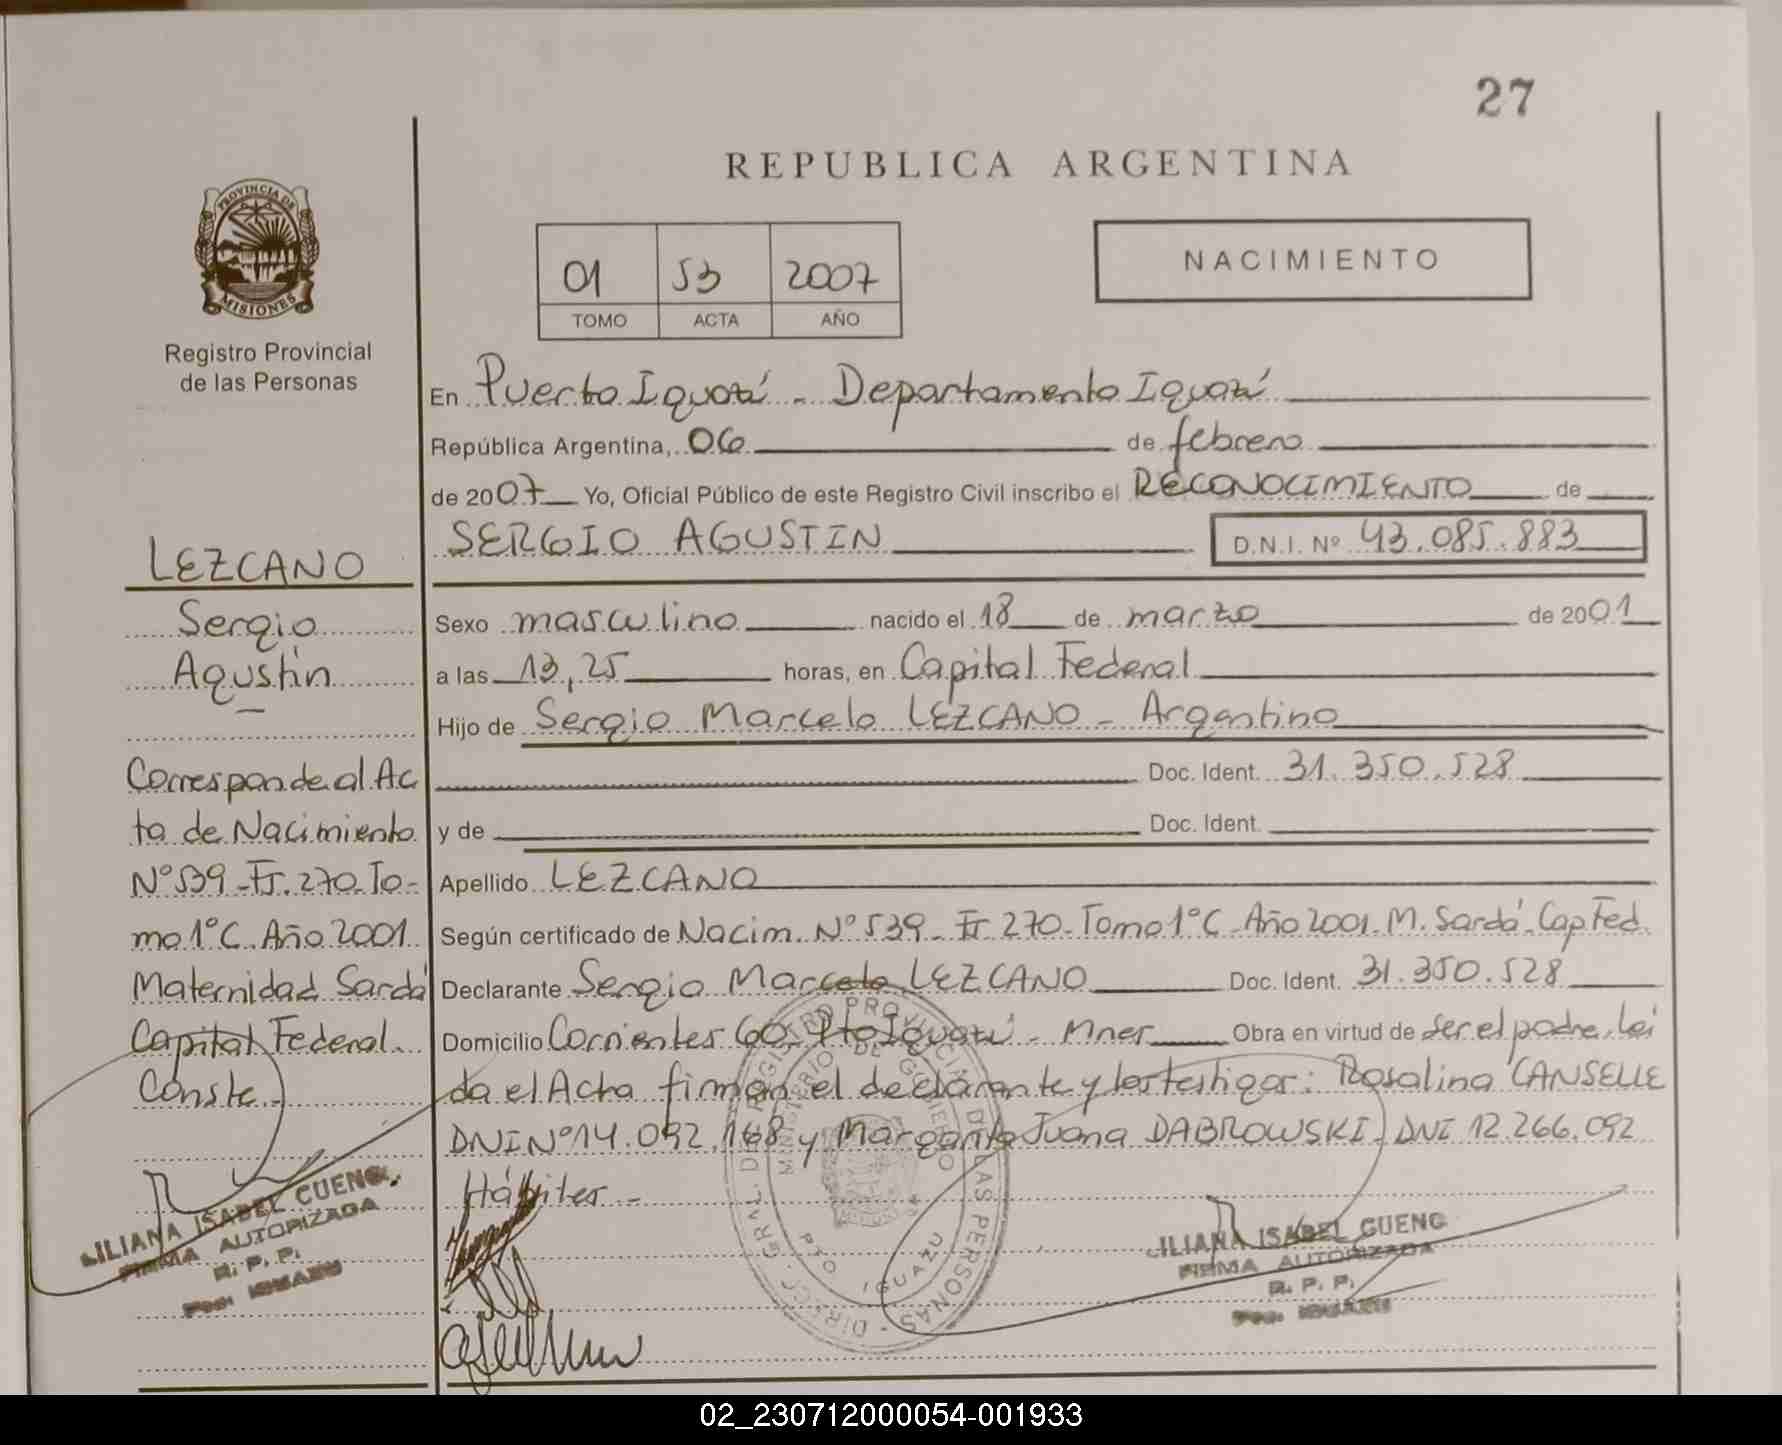 27
REPUBLICA ARGENTINA
PROVINCIA DE
MISIONES
Registro Provincial
de las Personas
01 53 2007
TOMO ACTA AÑO
NACIMIENTO
En Puerto Iguazú - Departamento Iguazú
República Argentina, 06 de febrero
de 2007 Yo, Oficial Público de este Registro Civil inscribo el RECONOCIMIENTO de
SERGIO AGUSTIN D.N.I. Nº 43.085.883
Sexo masculino nacido el 18 de marzo de 2001
a las 13,25 horas, en Capital Federal
Hijo de Sergio Marcelo LEZCANO - Argentino
Doc. Ident. 31.350.528
y de Doc. Ident.
Apellido LEZCANO
Según certificado de Nacim. Nº 539 - Fº 270 - Tomo 1º C - Año 2001. M. Sardá - Cap Fed.
Declarante Sergio Marcelo LEZCANO Doc. Ident. 31.350.528
Domicilio Corrientes 60 Pto Iguazú - Mnes Obra en virtud de ser el padre. Lei
da el Acta firman el declarante y los testigos: Rosalina CANSELLE
DNI Nº 14.092.168 y Margarita Juana DABROWSKI - DNI 12.266.092
LEZCANO
Sergio
Agustín
Corresponde al Ac
ta de Nacimiento
Nº 539 - Fº. 270 - To-
mo 1º C. Año 2001.
Maternidad Sardá
Capital Federal.
Conste -
LILIANA ISABEL CUENC
FIRMA AUTORIZADA
R. P. P.
Pto. IGUAZU
DIRECC. GRAL. DE REGISTRO PROVINCIAL DE LAS PERSONAS
MINISTERIO DE GOBIERNO
PTO. IGUAZU
LILIANA ISABEL CUENC
FIRMA AUTORIZADA
R. P. P.
Pto. IGUAZU
02_230712000054-001933